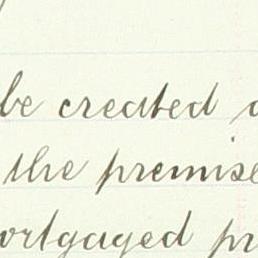 be created
the premise
ortgaged pr